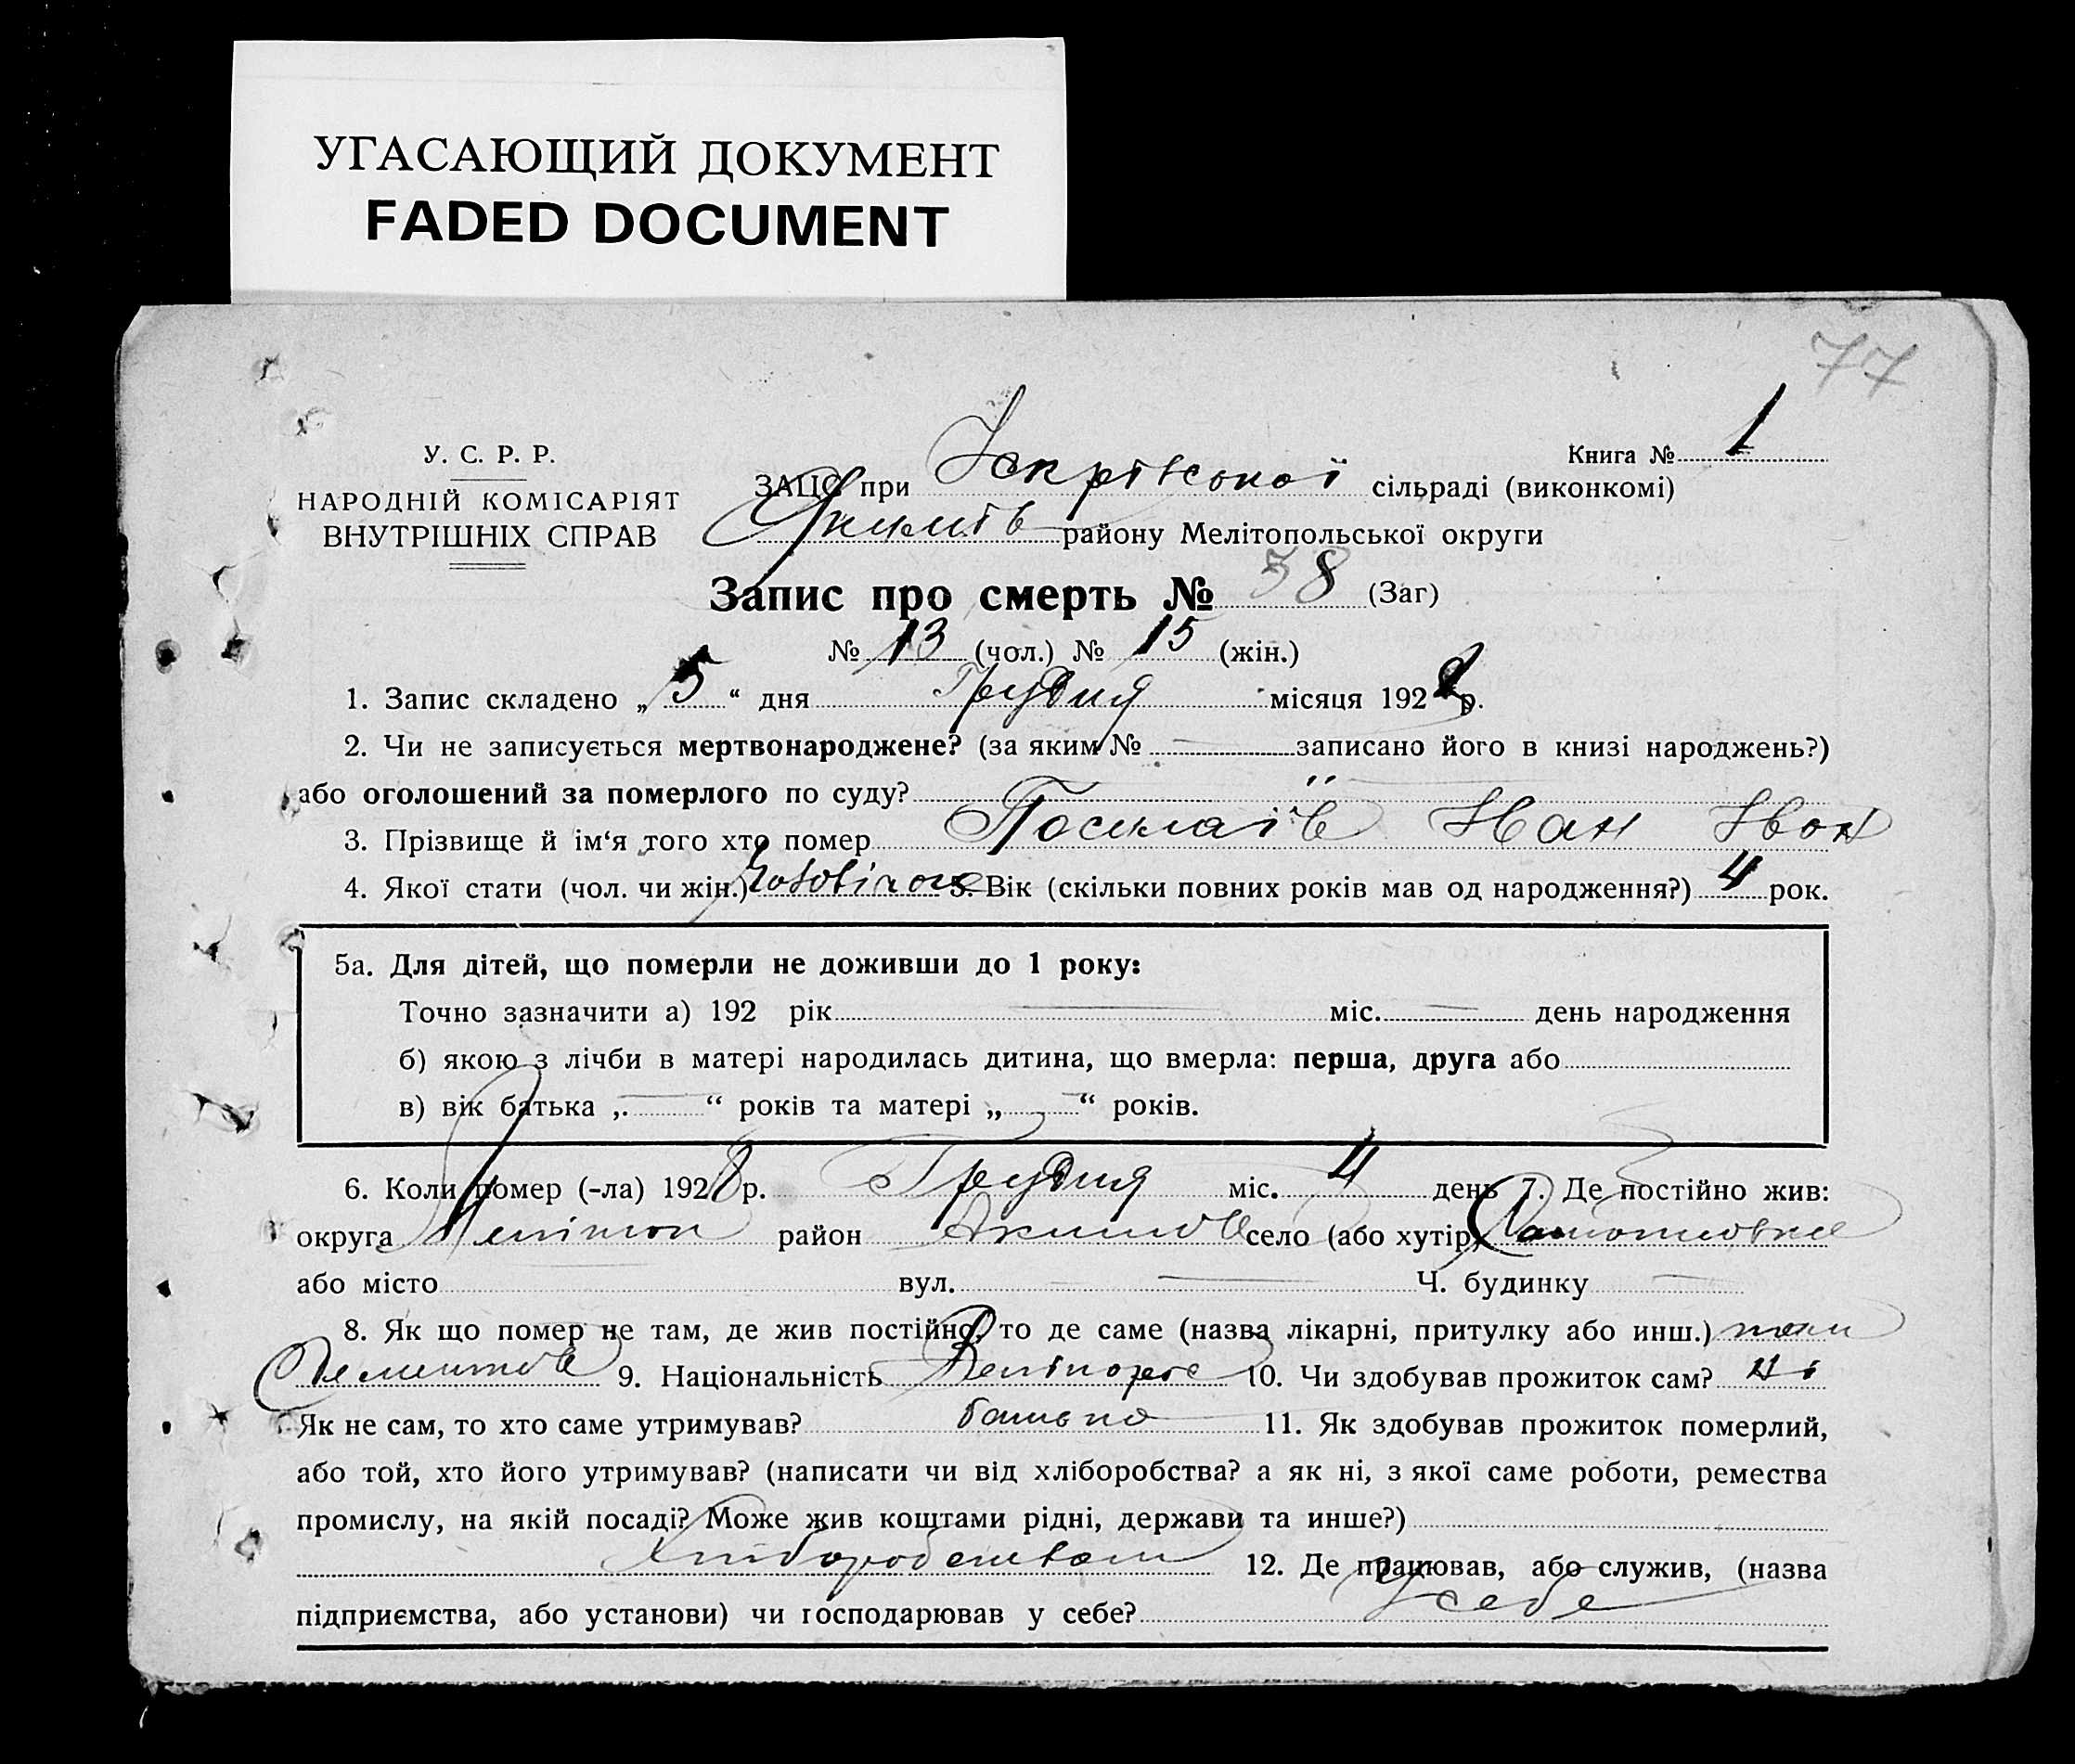 УГАСАЮЩИЙ ДОКУМЕНТ
FADED DOCUMENT
77
У. С. Р. Р.
НАРОДНІЙ КОМІСАРІЯТ
ВНУТРІШНІХ СПРАВ
Книга № 1
ЗАЦС при Іскрівської сільраді (виконкомі)
Якимів району Мелітопольської округи
Запис про смерть № 38 (Заг)
№ 13 (чол.) № 15 (жін.)
1. Запис складено „ 5 “ дня Грудня місяця 1928 р.
2. Чи не записується мертвонароджене? (за яким № записано його в книзі народжень?)
або оголошений за померлого по суду?
3. Прізвище й ім‘я того хто помер Іван Іван
4. Якої стати (чол. чи жін.) 5. Вік (скільки повних років мав од народження?) 4 рок.
5а. Для дітей, що померли не доживши до 1 року:
Точно зазначити а) 192 рік міс. день народження
б) якою з лічби в матері народилась дитина, що вмерла: перша, друга або
в) вік батька „ “ років та матері „ “ років.
6. Коли помер (-ла) 1928 р. Грудня міс. 4 день 7. Де постійно жив:
округа Мелітоп район Якимів село (або хутір)
або місто вул. Ч. будинку
8. Як що помер не там, де жив постійно, то де саме (назва лікарні, притулку або инш.)
9. Національність 10. Чи здобував прожиток сам? ні
Як не сам, то хто саме утримував? батько 11. Як здобував прожиток померлий,
або той, хто його утримував? (написати чи від хліборобства? а як ні, з якої саме роботи, ремества
промислу, на якій посаді? Може жив коштами рідні, держави та инше?)
Хліборобством 12. Де працював, або служив, (назва
підприємства, або установи) чи господарював у себе? У себе